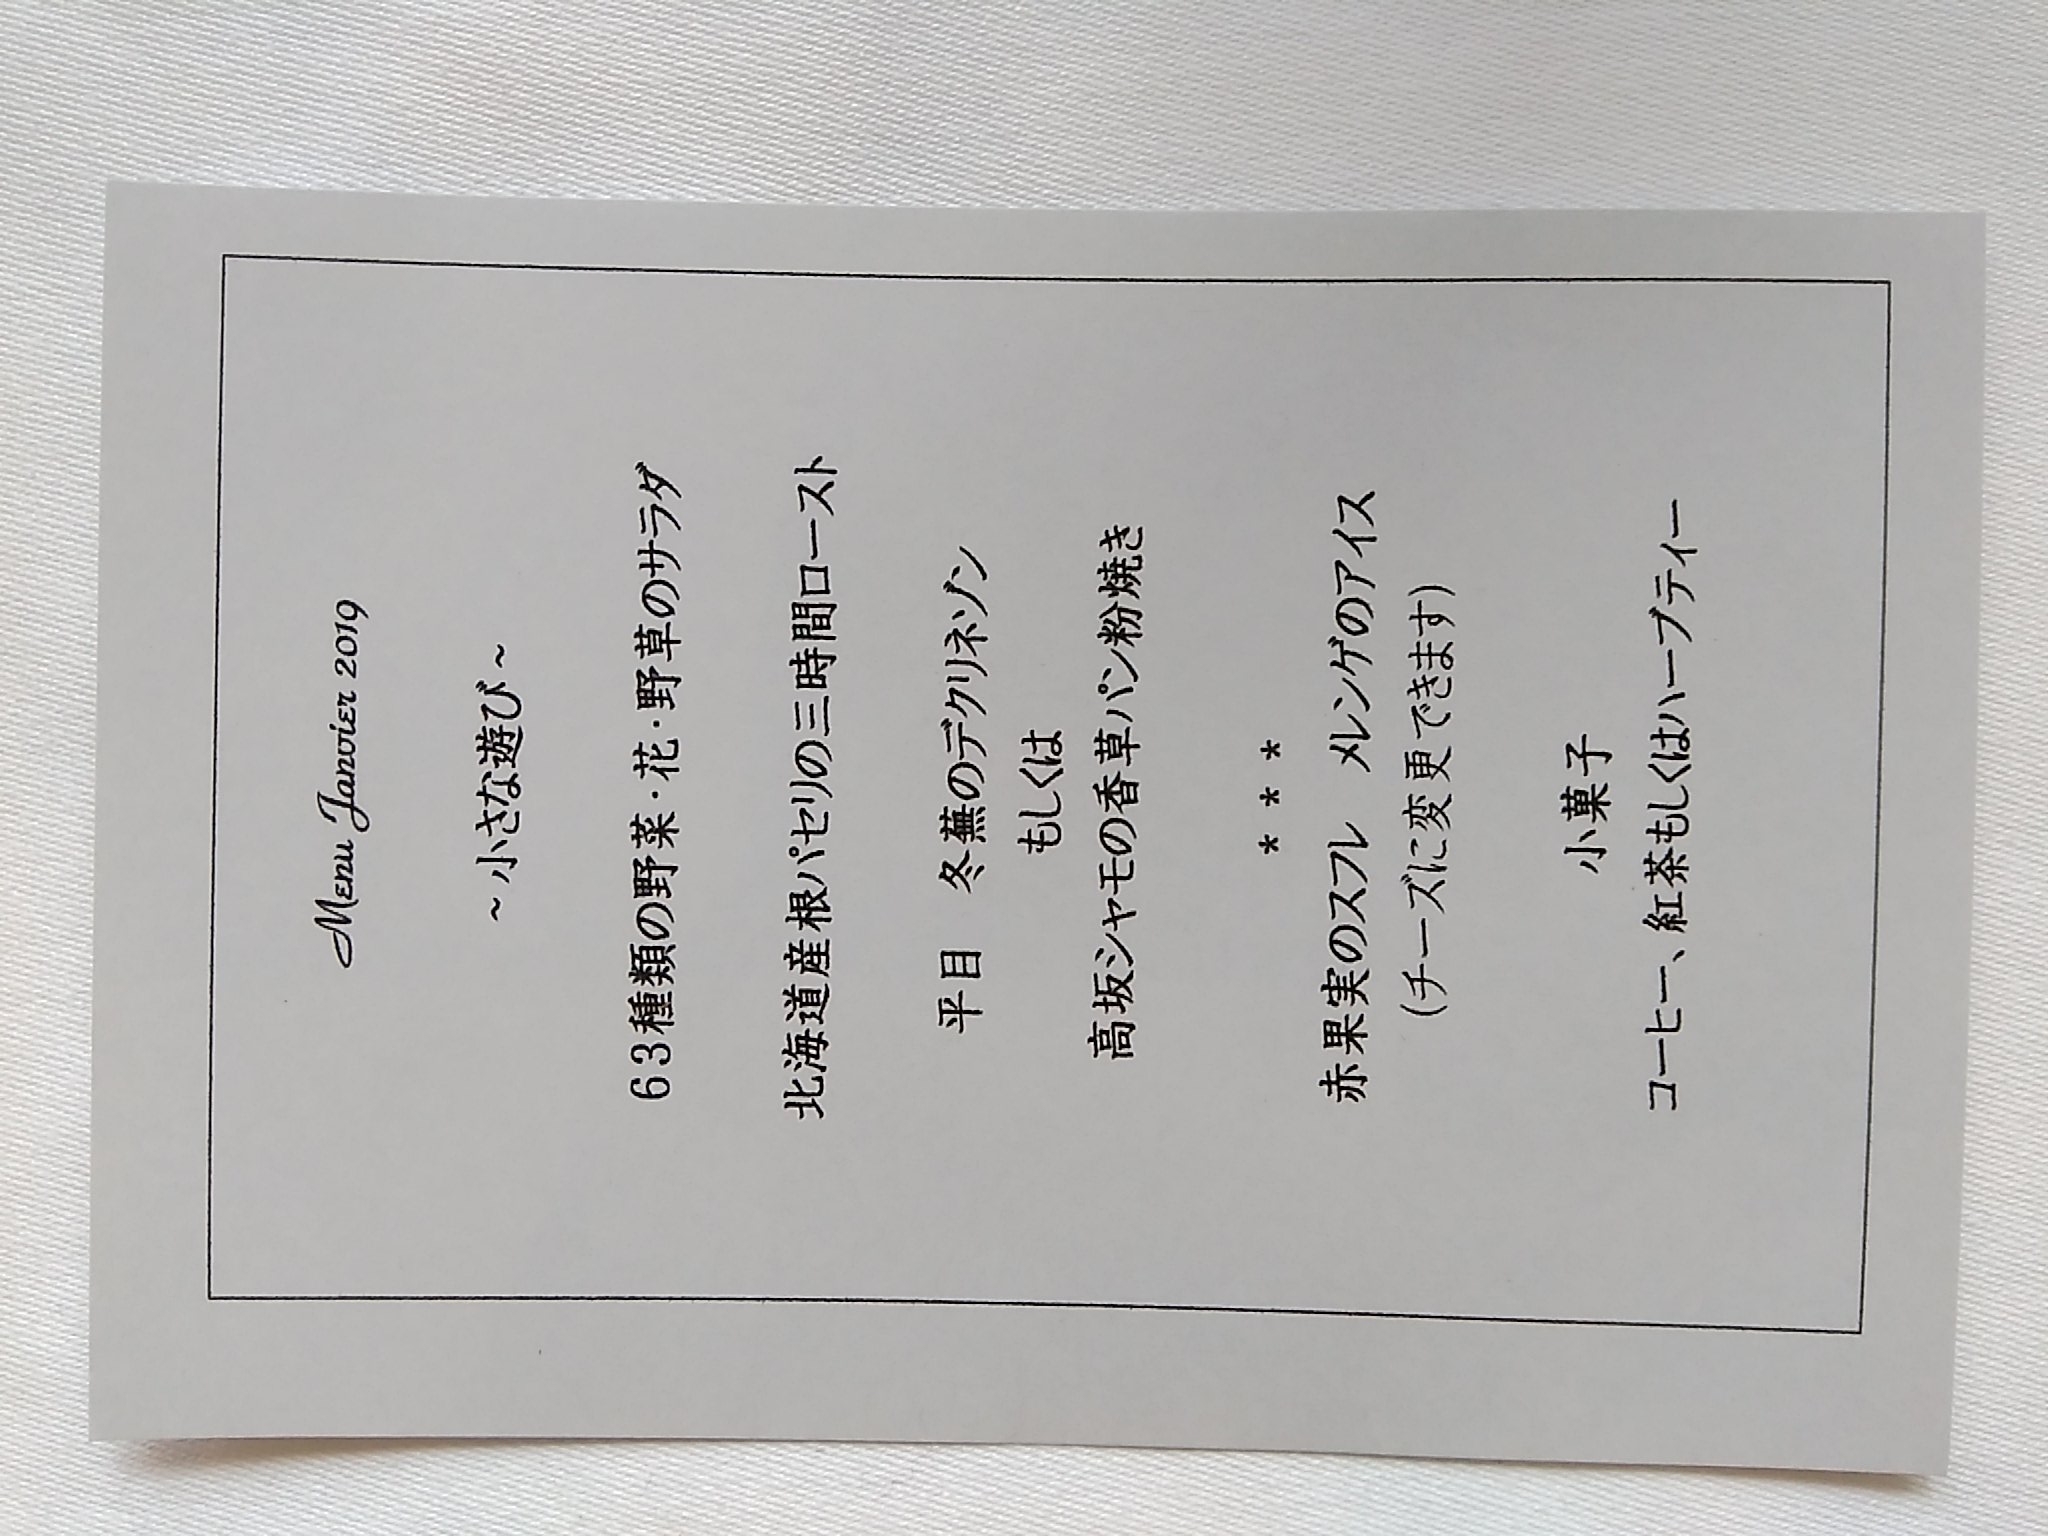 Menu Janvier 2019
~小さな遊び~
63種類の野菜・花・野草のサラダ
北海道産根パセリの三時間ロースト
平目　冬蕪のデクリネゾン
もしくは
高坂シャモの香草パン粉焼き
* * *
赤果実のスフレ　メレンゲのアイス
(チーズに変更できます)
小菓子
コーヒー、紅茶もしくはハーブティー